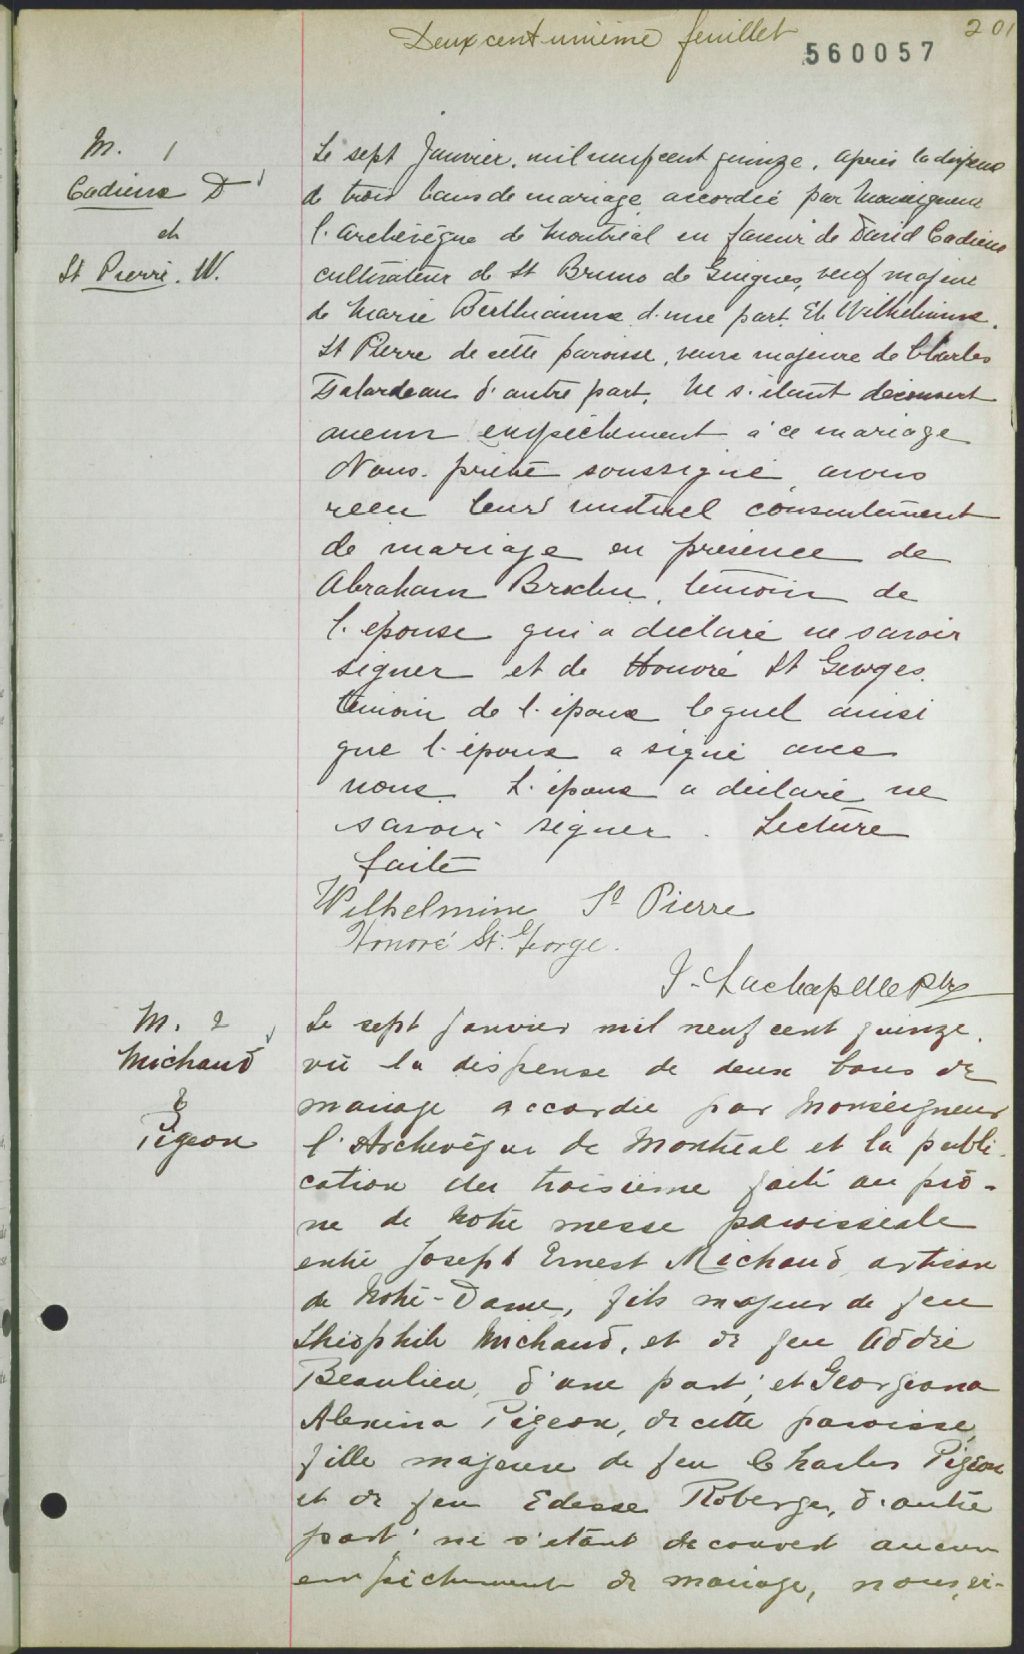 Deux cent unième feuillet
201
560057
M. 1
Cadieux D
et
St Pierre. W.
Le sept Janvier. mil neuf cent quinze. après la dispense
de trois bans de mariage accordée par Monseigneur
l'Archevêque de Montréal en faveur de David Cadieux
cultivateur de St Bruno de Guigues, veuf majeur
de Marie Berthiaume d'une part. Et Wilhelmine.
St Pierre de cette paroisse, veuve majeure de Charles
Falardeau d'autre part. Ne s'étant découvert
aucun empêchement à ce mariage
Nous prêtre soussigné avons
reçu leur mutuel consentement
de mariage en présence de
Abraham Brochu, témoin de
l'épouse qui a déclaré ne savoir
signer et de Honoré St Georges.
témoin de l'époux lequel ainsi
que l'époux a signé avec
nous. L'épouse a déclaré ne
savoir signer. Lecture
faite
Wilhelmine St Pierre
Honoré St. George.
J. Lachapelle ptre
M. 2
Michaud
&
Pigeon
Le sept janvier mil neuf cent quinze.
vu la dispense de deux bans de
mariage accordée par Monseigneur
l'Archevêque de Montréal et la publi-
cation du troisième faite au prô-
ne de notre messe paroissiale
entre Joseph Ernest Michaud, artisan
de Notre-Dame, fils majeur de feu
Théophile Michaud, et de feu Addie
Beaulieu, d'une part; et Georgiana
Alexina Pigeon, de cette paroisse,
fille majeure de feu Charles Pigeon
et de feu Edesse Roberge, d'autre
part; ne s'étant découvert aucun
empêchement de mariage, nous, vi-